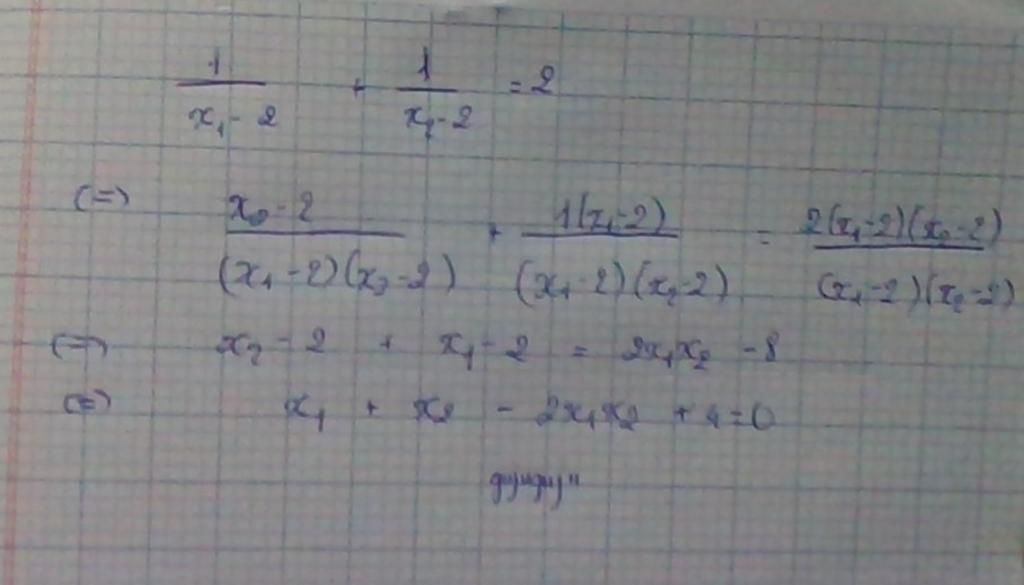 1/(x₁ - 2) + 1/(x₂ - 2) = 2
(=) (x₂ - 2)/((x₁ - 2)(x₂ - 2)) + 1(x₁ - 2)/((x₁ - 2)(x₂ - 2)) = 2(x₁ - 2)(x₂ - 2)/((x₁ - 2)(x₂ - 2))
(=) x₂ - 2 + x₁ - 2 = 2x₁x₂ - 8
(=) x₁ + x₂ - 2x₁x₂ + 4 = 0